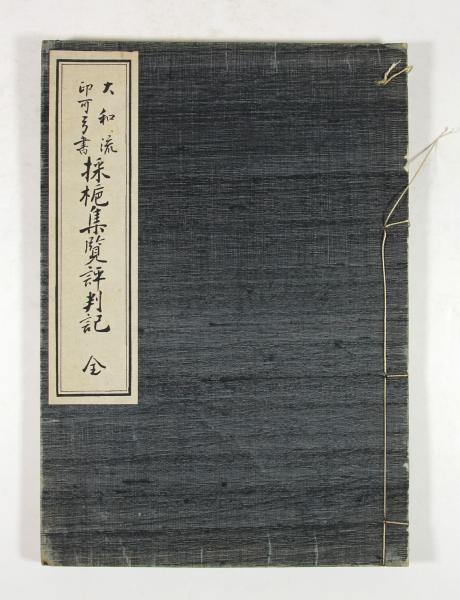 大和流
印可弓書
採葩集覧評判記 全